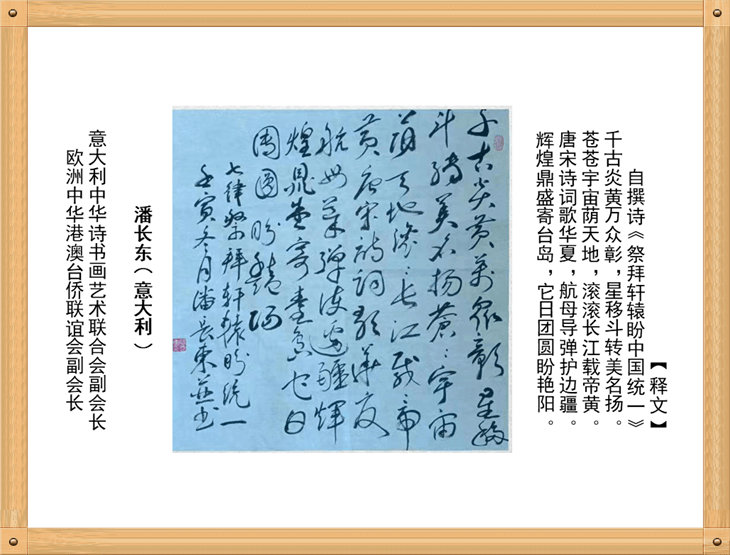 【释文】
自撰诗《祭拜轩辕盼中国统一》
千古炎黄万众彰，星移斗转美名扬。
苍苍宇宙荫天地，滚滚长江载帝黄。
唐宋诗词歌华夏，航母导弹护边疆。
辉煌鼎盛寄台岛，它日团圆盼艳阳。
千古炎黄万众彰星移
斗转美名扬苍:宇宙
荫天地滚:长江载帝
黄唐宋诗词歌华夏
航母导弹护边疆辉
煌鼎盛寄台岛它日
團圆盼艳阳
七律祭拜轩辕盼统一
壬寅冬月潘长东并书
潘长东（意大利）
意大利中华诗书画艺术联合会副会长
欧洲中华港澳台侨联谊会副会长